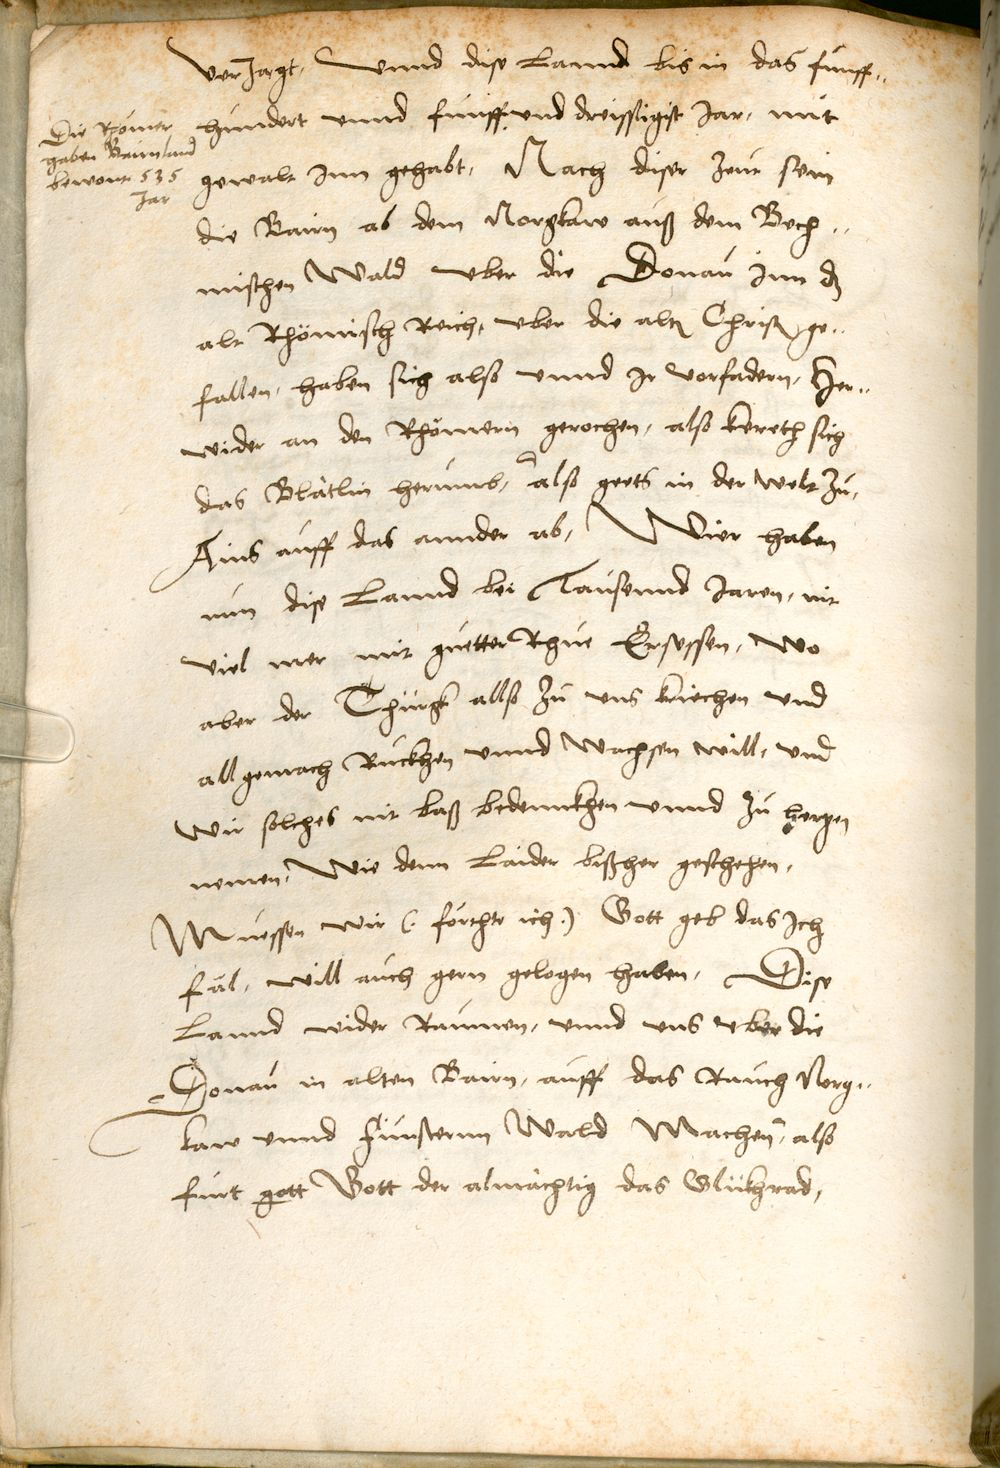 Verjagt, Vnnd dise Lannd bis in das funff..
hundert vnnd funff vnd dreissigist Jar, mit
Die Römer
haben Bairnland
bewont 535
Jar
gewalt Inn gehabt, Nach diser Zeut sein
die Bairn ab dem Norgkaw auß dem Bech..
mischen Wald vber die Donau Inn dz
alt Rhömisch Reich, vber die alt Christ ge..
fallen, haben sich also vnnd Ir vorfadern, Her..
wider an den Rhömern gerochen, also kereth sich
das Blätlin herumb, also geets in der welt Zu,
Ains auff das annder ab, Wier haben
nun dise Lannd bei Tausennd Jaren, nit
viel mer mit guetter Rhue Ersessen, Wo
aber der Thürgk allso Zu vns kriechen vnd
allgemach Ruckhen vnnd Wachsen will, vnd
Wir solches nit baß bedennkhen vnnd Zu herzen
nemen, Wie dem Laider bißher geschehen,
Muessen wir (: förchte ich :) Gott geb das Ich
fäl, will auch gern gelogen haben, Dise
Lannd wider Raumen, vnnd vns vber die
Donau in alten Bairn, auff das Rauch Norg..
kaw vnnd Fünstern Wald Machen, also
furt gott Gott der almächtig das Glükhrad,